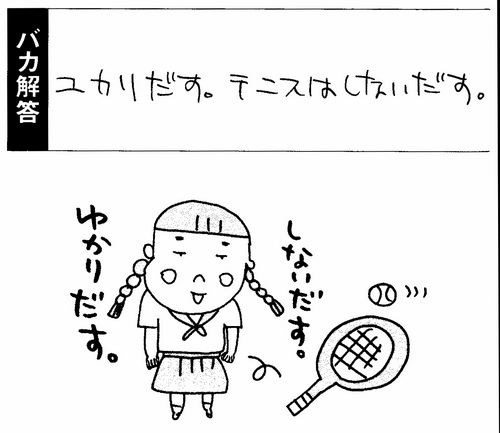 バカ解答
ユカリだす。テニスはしないだす。
しないだす。
ゆかりだす。